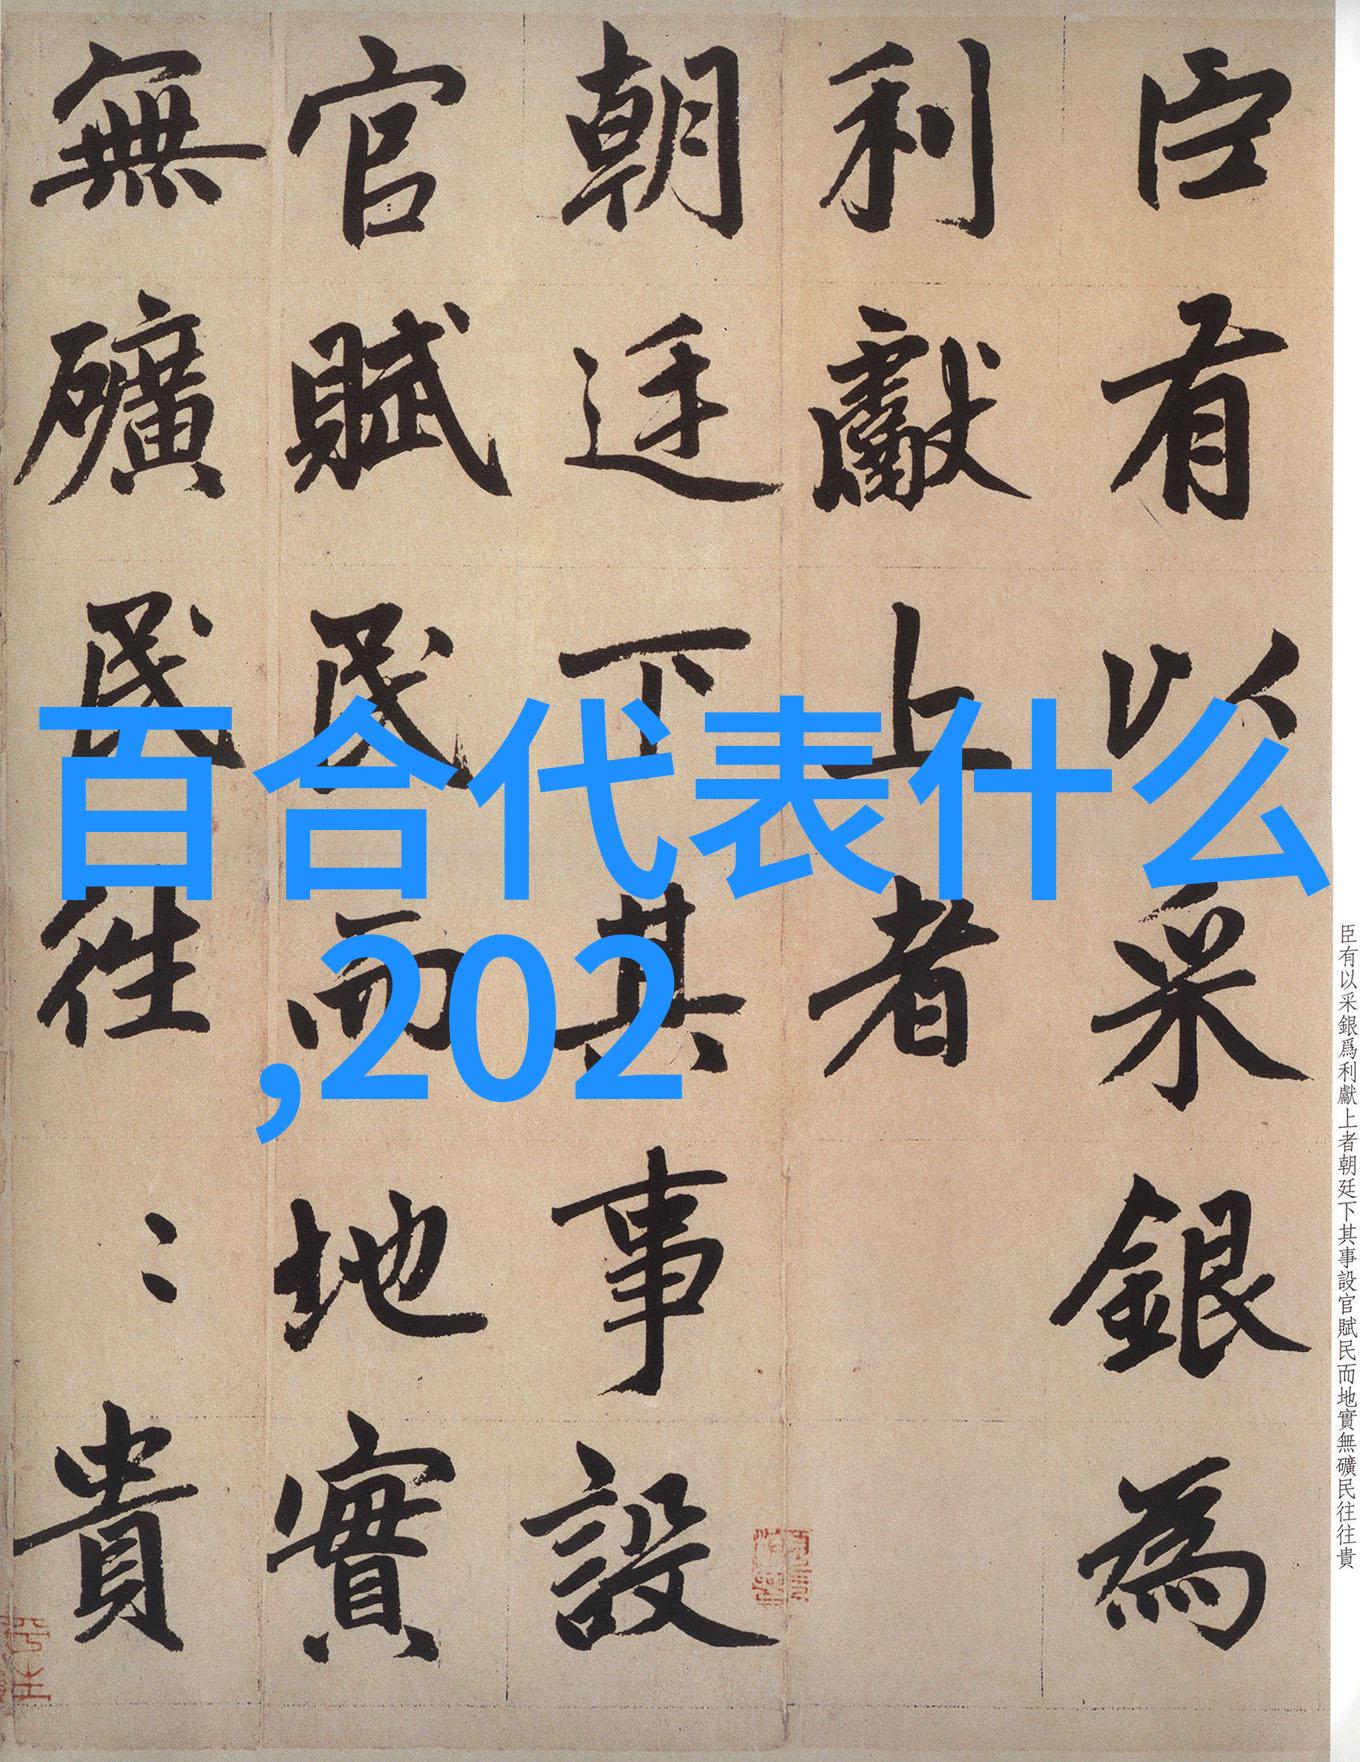 臣有以采銀為
利獻上者
朝廷下其事設
官賦民而地實
無礦民往〻貴
百合代表什么
,202
臣有以采銀爲利獻上者朝廷下其事設官賦民而地實無礦民往往貴